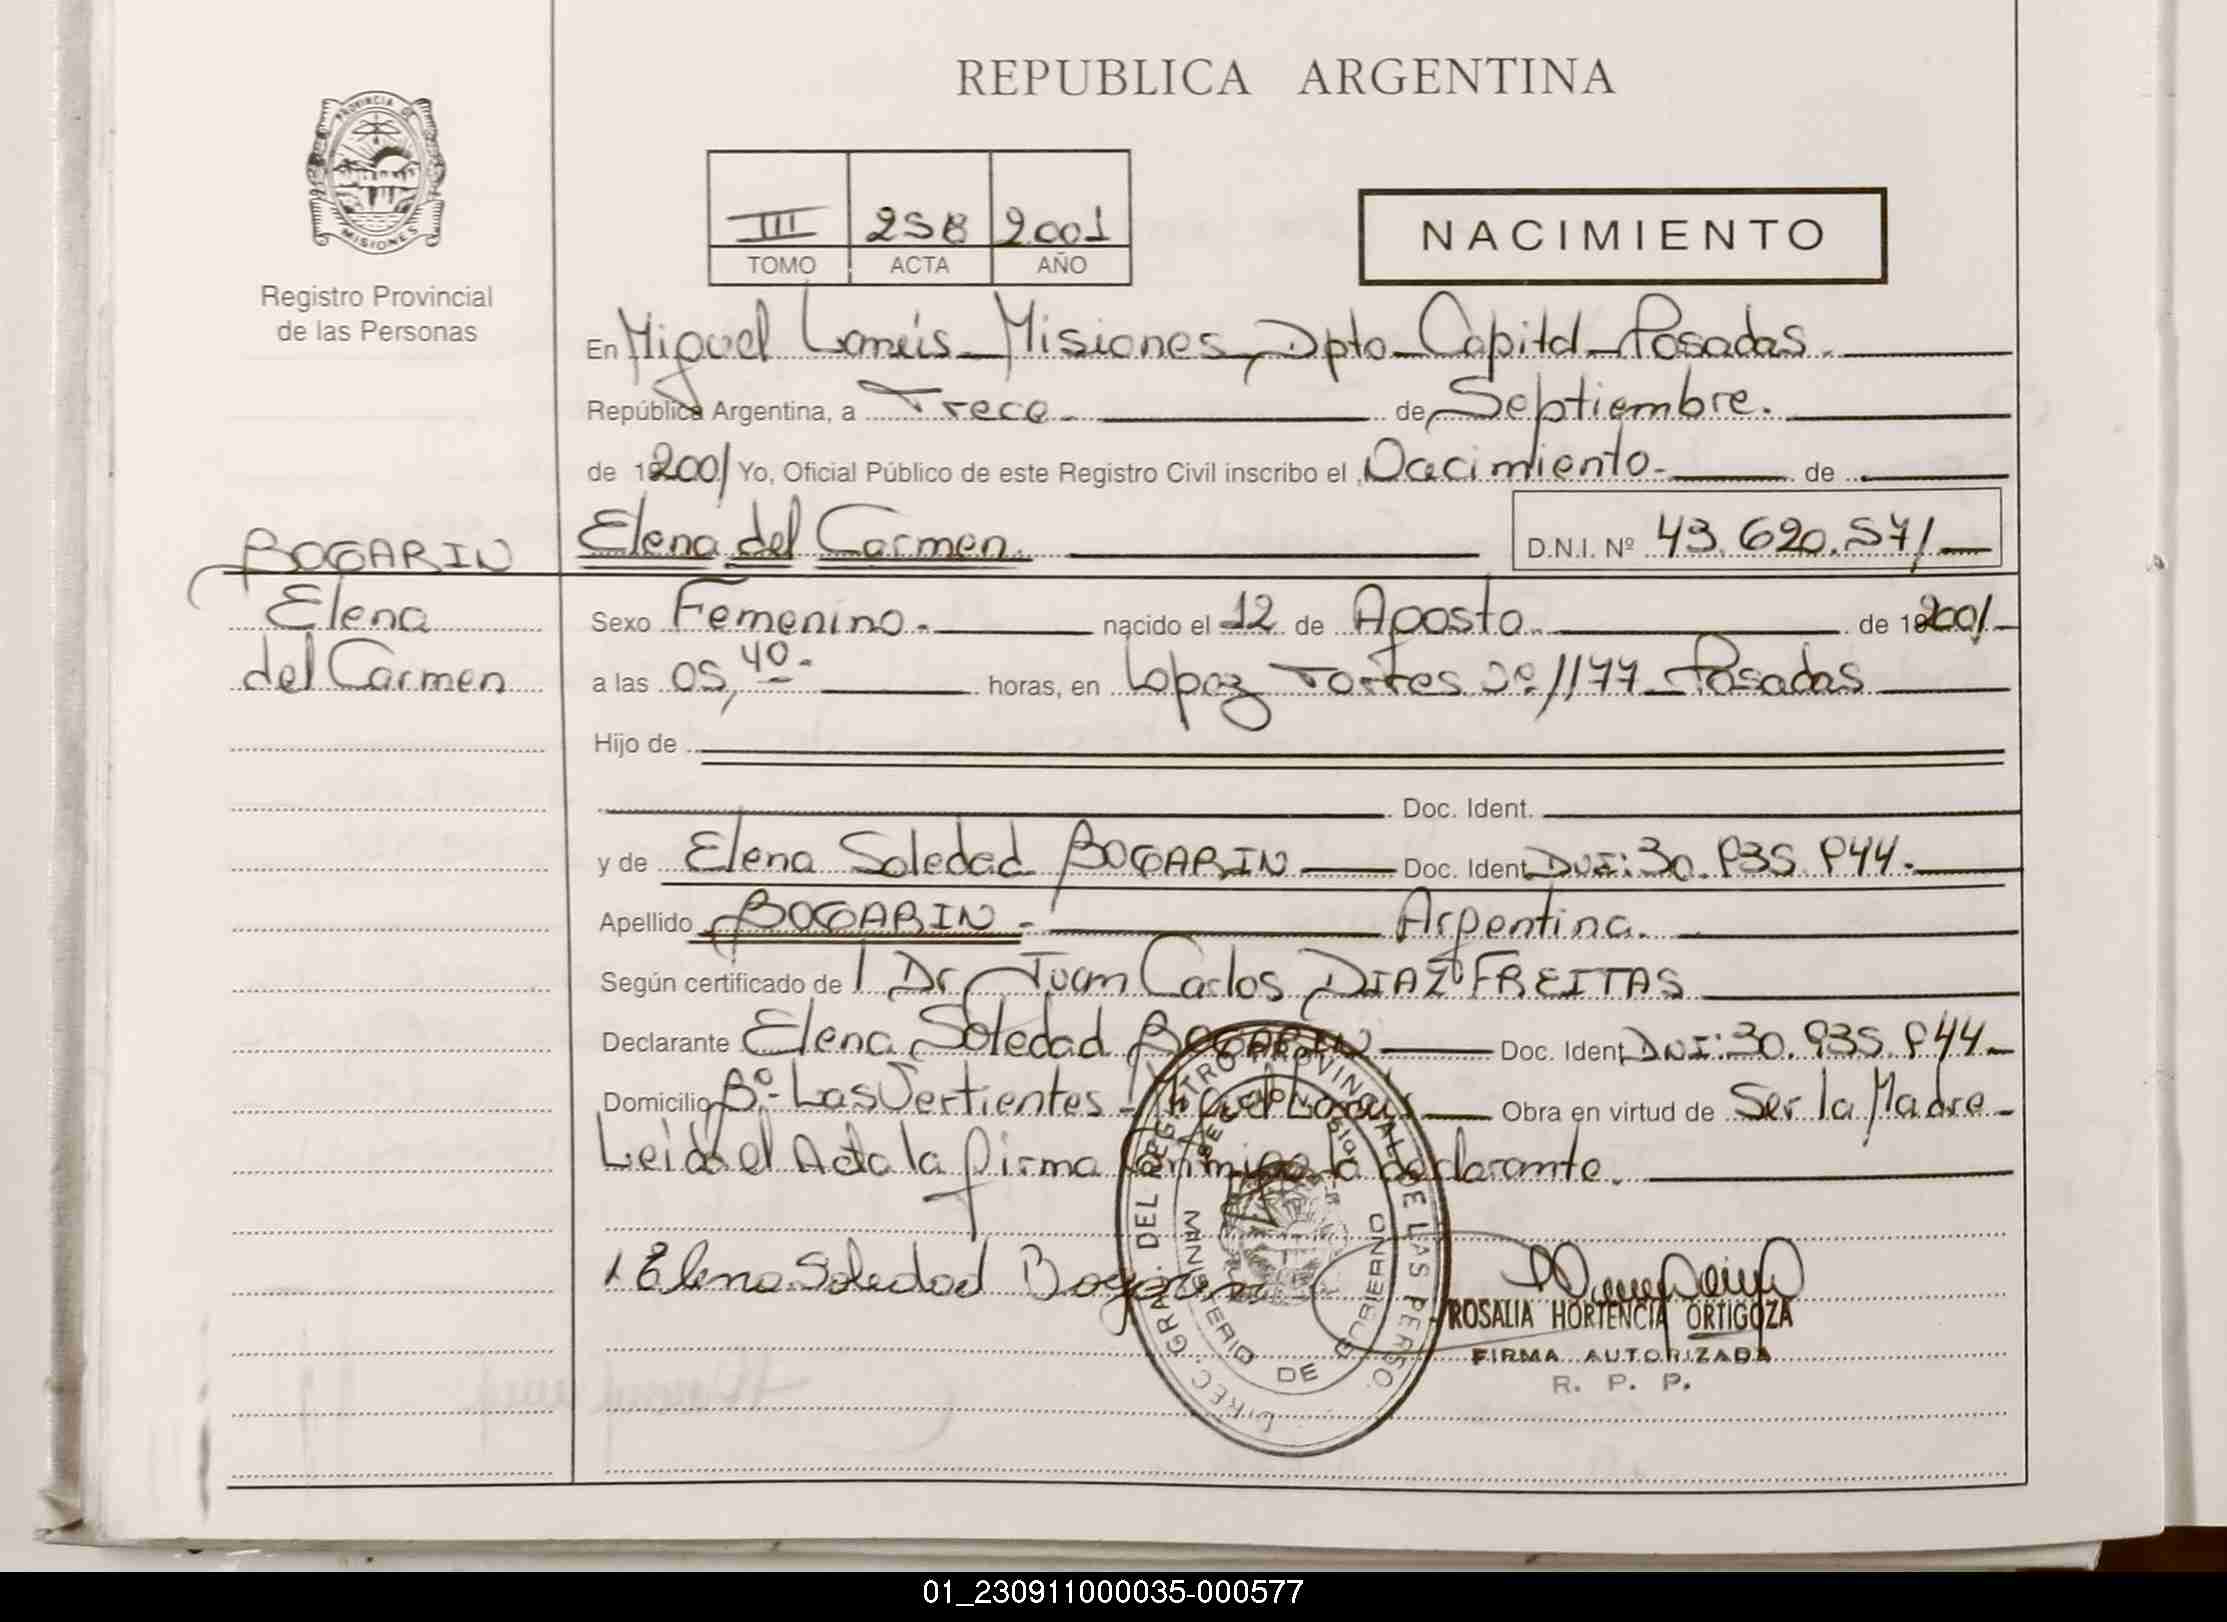 REPUBLICA ARGENTINA
PROVINCIA DE
MISIONES
Registro Provincial
de las Personas
III 258 2001
TOMO ACTA AÑO
NACIMIENTO
En Miguel Lanús - Misiones, Dpto Capital - Posadas.
República Argentina, a Trece de Septiembre.
de 2001 Yo, Oficial Público de este Registro Civil inscribo el Nacimiento de
BOGARIN Elena del Carmen D.N.I. Nº 43.620.571
Elena Sexo Femenino. nacido el 12 de Agosto de 2001
del Carmen a las 05,40 horas, en Lopez Torres Nº 1177 - Posadas
Hijo de
Doc. Ident.
y de Elena Soledad BOGARIN Doc. Ident. DNI: 30.935.944.
Apellido BOGARIN Argentina.
Según certificado de / Dr. Juan Carlos DIAZ FREITAS
Declarante Elena Soledad BOGARIN Doc. Ident. DNI: 30.935.944
Domicilio Bº Las Vertientes - Miguel Lanús Obra en virtud de Ser la Madre
Leida el Acta la firma Conmigo la declarante.
Elena Soledad Bogarin
DIREC. GRAL. DEL REGISTRO PROVINCIAL DE LAS PERSO.
MINISTERIO DE GOBIERNO
ROSALIA HORTENCIA ORTIGOZA
FIRMA AUTORIZADA
R. P. P.
01_230911000035-000577